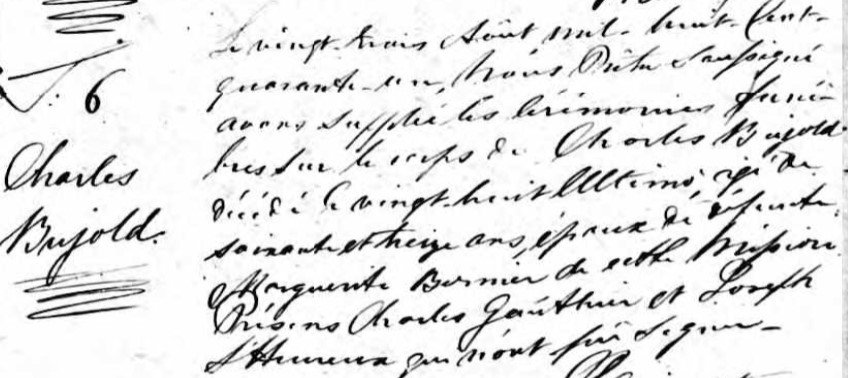 S. 6
Charles
Bujold.
Le vingt-trois Août mil-huit-Cent-
quarante-un, Nous Prêtre Soussigné
avons supplié les Cérémonies funè-
bres sur le corps de Charles Bujold
décédé le vingt-huit Ultimo, âgé de
soixante et treize ans, époux de défunte
Marguerite Bernier de cette Mission.
Présens Charles Gauthier et Joseph
L'Heureux qui n'ont su signer-